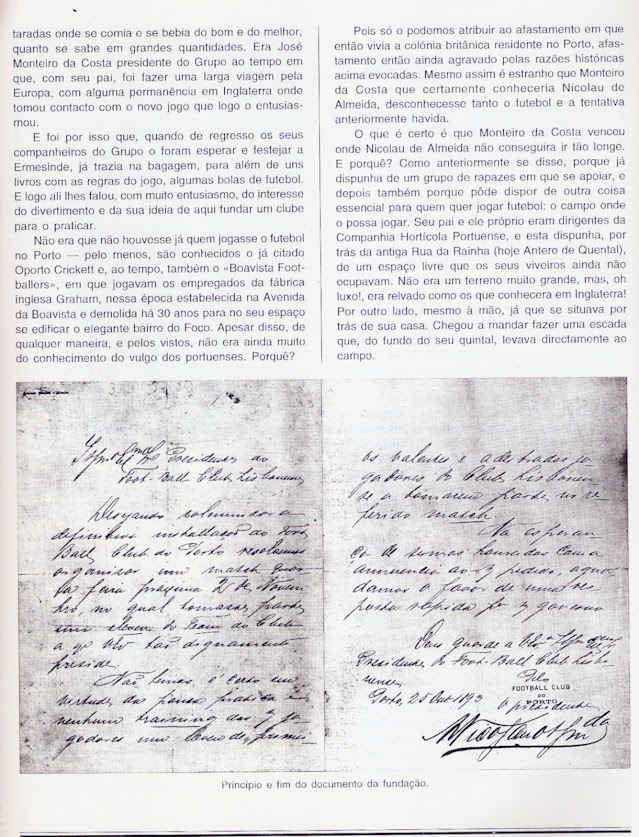 taradas onde se comia e se bebia do bom e do melhor,
quanto se sabe em grandes quantidades. Era José
Monteiro da Costa presidente do Grupo ao tempo em
que, com seu pai, foi fazer uma larga viagem pela
Europa, com alguma permanência em Inglaterra onde
tomou contacto com o novo jogo que logo o entusias-
mou.
E foi por isso que, quando de regresso os seus
companheiros do Grupo o foram esperar e festejar a
Ermesinde, já trazia na bagagem, para além de uns
livros com as regras do jogo, algumas bolas de futebol.
E logo ali lhes falou, com muito entusiasmo, do interesse
do divertimento e da sua ideia de aqui fundar um clube
para o praticar.
Não era que não houvesse já quem jogasse o futebol
no Porto — pelo menos, são conhecidos o já citado
Oporto Crickett e, ao tempo, também o «Boavista Foot-
ballers», em que jogavam os empregados da fábrica
inglesa Graham, nessa época estabelecida na Avenida
da Boavista e demolida há 30 anos para no seu espaço
se edificar o elegante bairro do Foco. Apesar disso, de
qualquer maneira, e pelos vistos, não era ainda muito
do conhecimento do vulgo dos portuenses. Porquê?
Pois só o podemos atribuir ao afastamento em que
então vivia a colónia britânica residente no Porto, afas-
tamento então ainda agravado pelas razões históricas
acima evocadas. Mesmo assim é estranho que Monteiro
da Costa que certamente conheceria Nicolau de
Almeida, desconhecesse tanto o futebol e a tentativa
anteriormente havida.
O que é certo é que Monteiro da Costa venceu
onde Nicolau de Almeida não conseguira ir tão longe.
E porquê? Como anteriormente se disse, porque já
dispunha de um grupo de rapazes em que se apoiar, e
depois também porque pôde dispor de outra coisa
essencial para quem quer jogar futebol: o campo onde
o possa jogar. Seu pai e ele próprio eram dirigentes da
Companhia Hortícola Portuense, e esta dispunha, por
trás da antiga Rua da Rainha (hoje Antero de Quental),
de um espaço livre que os seus viveiros ainda não
ocupavam. Não era um terreno muito grande, mas, oh
luxo!, era relvado como os que conhecera em Inglaterra!
Por outro lado, mesmo à mão, já que se situava por
trás de sua casa. Chegou a mandar fazer uma escada
que, do fundo do seu quintal, levava directamente ao
campo.
Presidente do
Foot-Ball Club Lisbonense
Desejando solemnisar a
definitiva installação do Foot
Ball Club do Porto resolvemos
organisar um match quar-
ta feira proxima 2 de Novem
bro, no qual tomasse parte
um eleven do Team do Club
a q VEx tão dignamente
preside.
Não temos, é certo em
virtude da pouca pratica e
nenhum training dos jo
gadores um eleven,
os valentes e adestrados jo
gadores do Club Lisbonen
se a tomarem parte no re
ferido match.
Na esperan
ça de sermos honrados com a
annuencia ao pedido, aguar
damos o favor de uma res
posta rapida
Deus guarde a
Presidente do Foot-Ball Club Lisbo
nense
Porto, 25 Out 1893
Pelo
FOOTBALL CLUB
DO
PORTO
O presidente
Princípio e fim do documento da fundação.